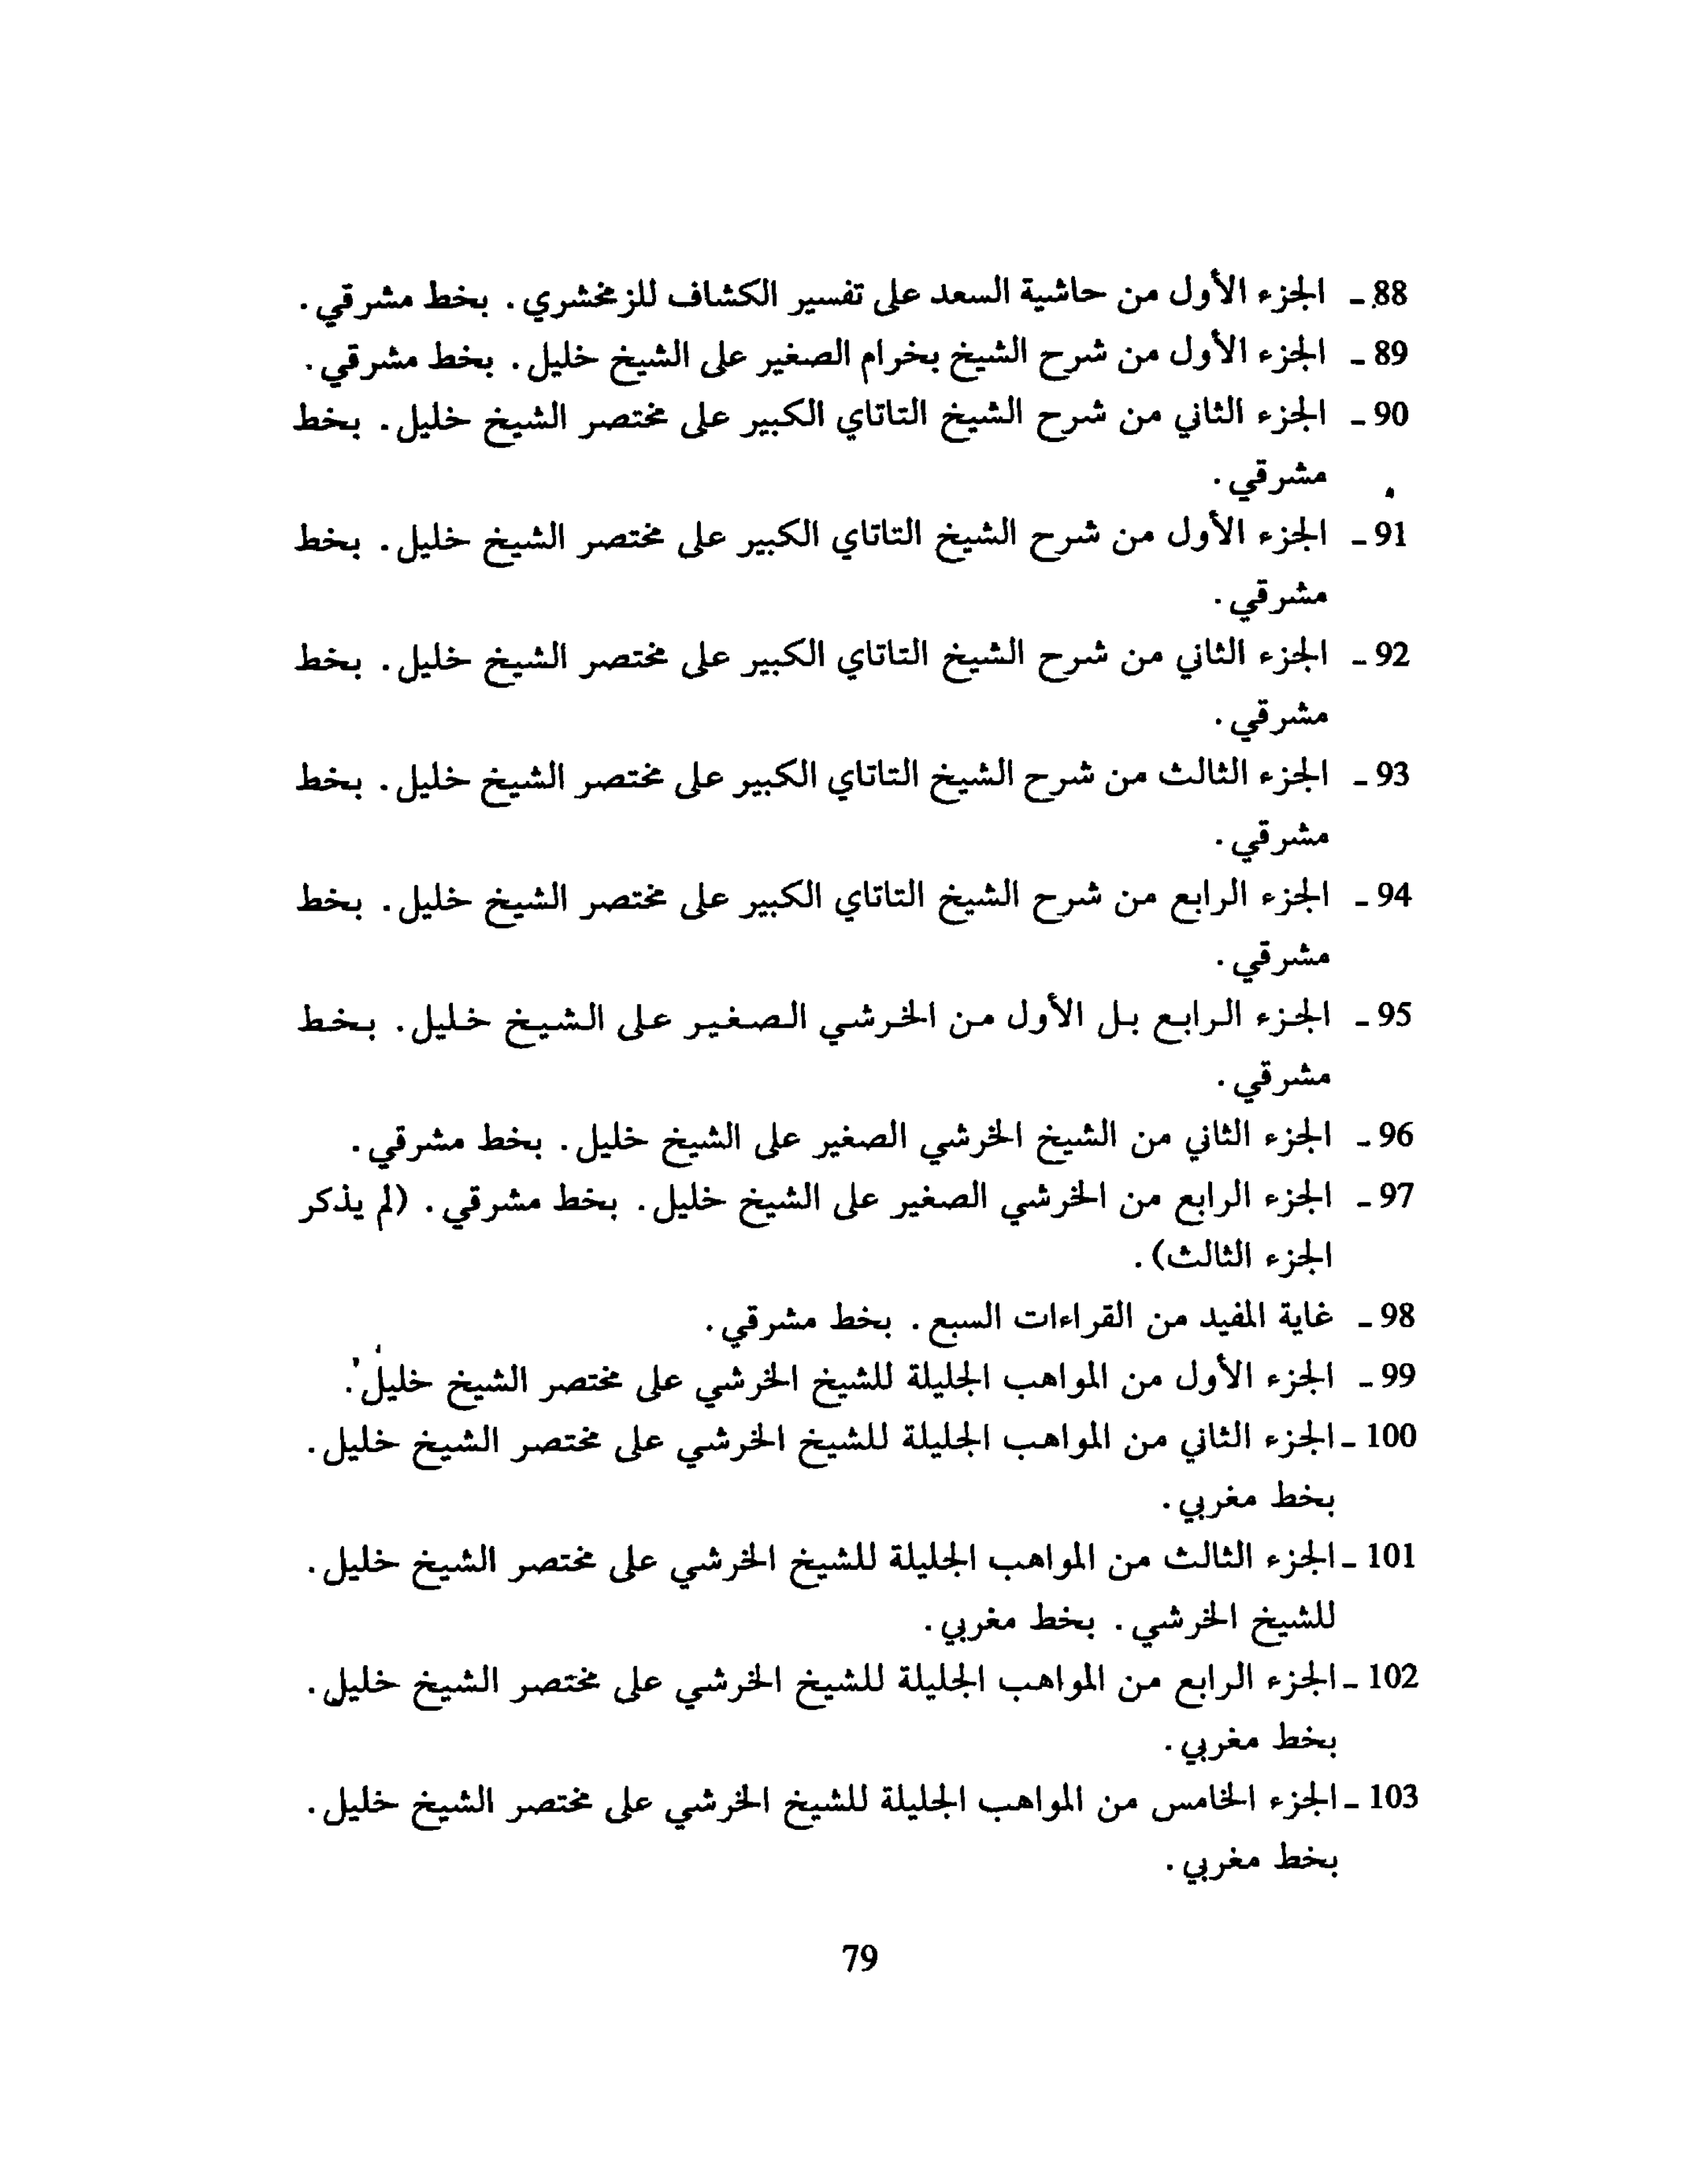 88 ـ الجزء الأول من حاشية السعد على تفسير الكشاف للزمخشري. بخط مشرقي.
89 ـ الجزء الأول من شرح الشيخ بخرام الصغير على الشيخ خليل. بخط مشرقي.
90 ـ الجزء الثاني من شرح الشيخ التاتاي الكبير على مختصر الشيخ خليل. بخط
مشرقي.
91 ـ الجزء الأول من شرح الشيخ التاتاي الكبير على مختصر الشيخ خليل. بخط
مشرقي.
92 ـ الجزء الثاني من شرح الشيخ التاتاي الكبير على مختصر الشيخ خليل. بخط
مشرقي.
93 ـ الجزء الثالث من شرح الشيخ التاتاي الكبير على مختصر الشيخ خليل. بخط
مشرقي.
94 ـ الجزء الرابع من شرح الشيخ التاتاي الكبير على مختصر الشيخ خليل. بخط
مشرقي.
95 ـ الجزء الرابع بل الأول من الخرشي الصغير على الشيخ خليل. بخط
مشرقي.
96 ـ الجزء الثاني من الشيخ الخرشي الصغير على الشيخ خليل. بخط مشرقي.
97 ـ الجزء الرابع من الخرشي الصغير على الشيخ خليل. بخط مشرقي. (لم يذكر
الجزء الثالث).
98 ـ غاية المفيد من القراءات السبع. بخط مشرقي.
99 ـ الجزء الأول من المواهب الجليلة للشيخ الخرشي على مختصر الشيخ خليل.
100 ـ الجزء الثاني من المواهب الجليلة للشيخ الخرشي على مختصر الشيخ خليل.
بخط مغربي.
101 ـ الجزء الثالث من المواهب الجليلة للشيخ الخرشي على مختصر الشيخ خليل.
للشيخ الخرشي. بخط مغربي.
102 ـ الجزء الرابع من المواهب الجليلة للشيخ الخرشي على مختصر الشيخ خليل.
بخط مغربي.
103 ـ الجزء الخامس من المواهب الجليلة للشيخ الخرشي على مختصر الشيخ خليل.
بخط مغربي.
79